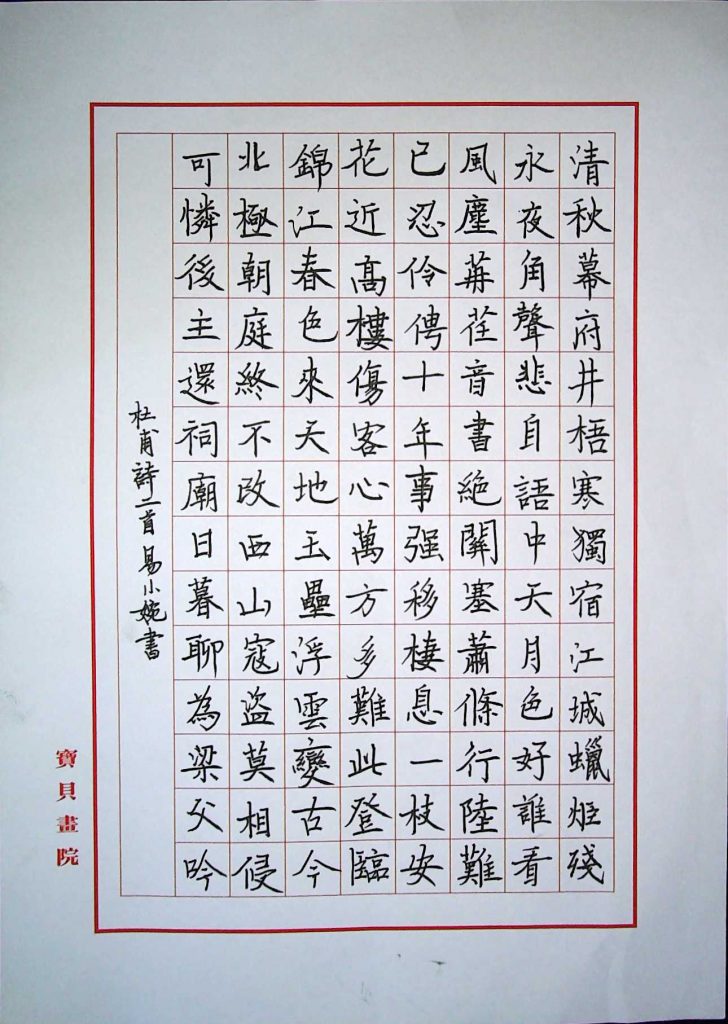 清秋幕府井梧寒獨宿江城蠟炬殘
永夜角聲悲自語中天月色好誰看
風塵苒荏音書絕關塞蕭條行陸難
已忍伶俜十年事强移棲息一枝安
花近髙樓傷客心萬方多難此登臨
錦江春色來天地玉壘浮雲變古今
北極朝庭終不改西山寇盜莫相侵
可憐後主還祠廟日暮聊為梁父吟
杜甫詩二首 易小婉書
寶貝畫院